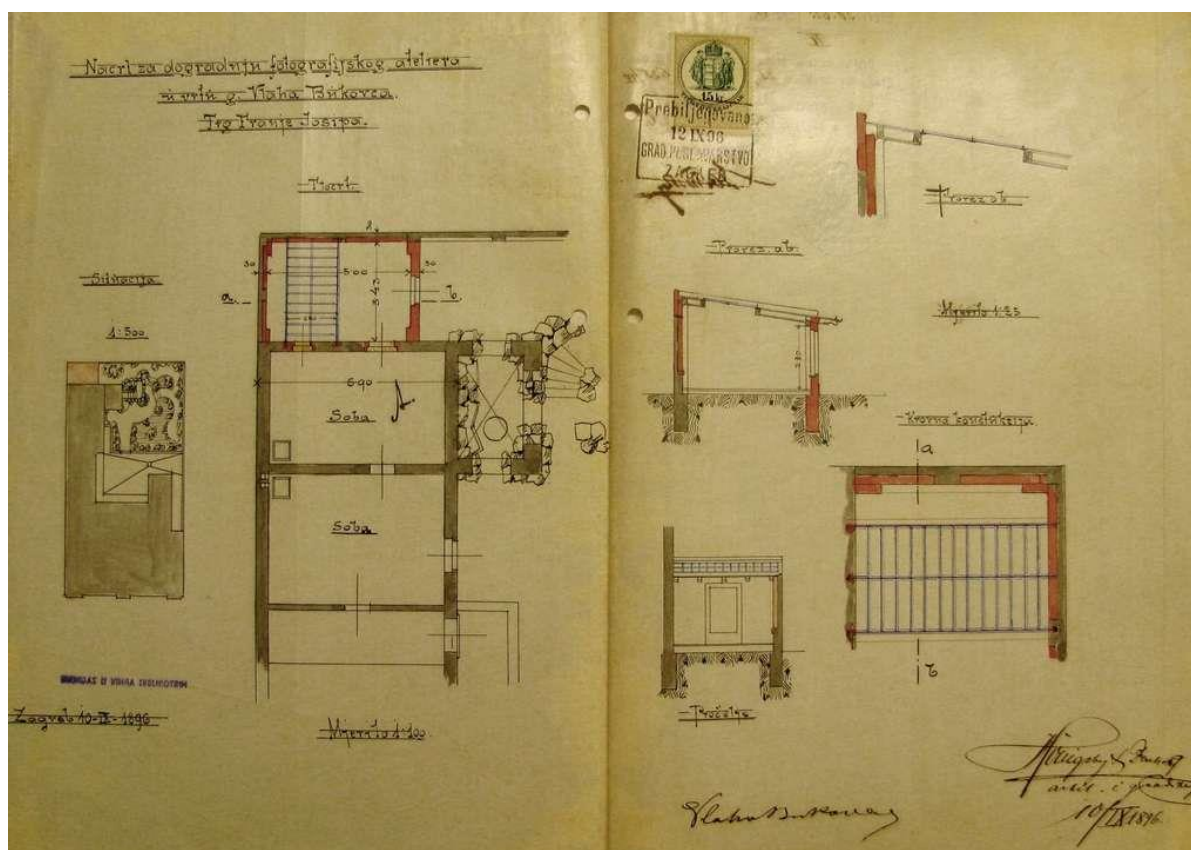 Nacrt za dogradnju fotografijskog ateliera
u vrtu g. Vlaha Bukovca.
Trg Franje Josipa.
Tlocrt.
Situacija
1:500
30
5·00
30
3·43
a.
b.
6·90
Soba
Soba
Zagreb 10-IX-1896
Mjerilo 1:100.
15 kr
Prebiljegovano
12 IX 96
GRAD. POGLAVARSTVO
ZAGREB
Prorez ab
Prorez. ab.
Mjerilo 1:25
2·80
Krovna konstrukcija
a
b
Pročelje
Vlaho Bukovac
Hönigsberg &
arhit. i
10/IX 1896.